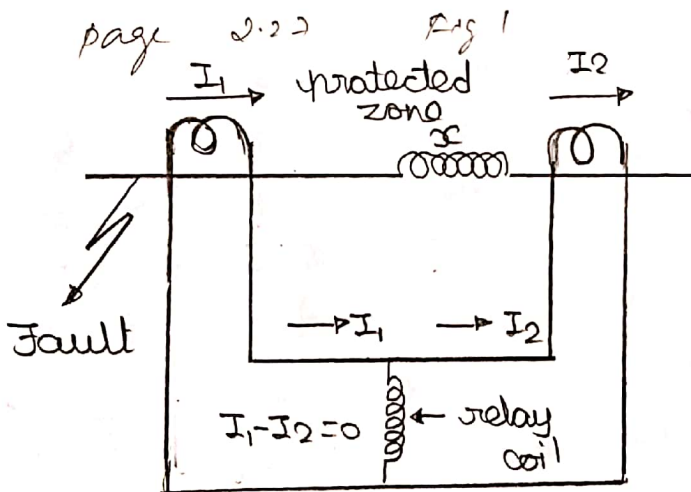 page 2.22 Fig 1
I1 protected I2
zone
x
Fault
I1 I2
I1-I2=0 relay
coil